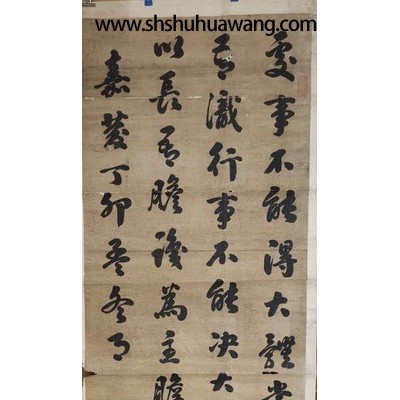 www.shshuhuawang.com
處事不能得大體當
吾識行事不能決大
以長吾膽識為主膽
嘉慶丁卯孟冬月